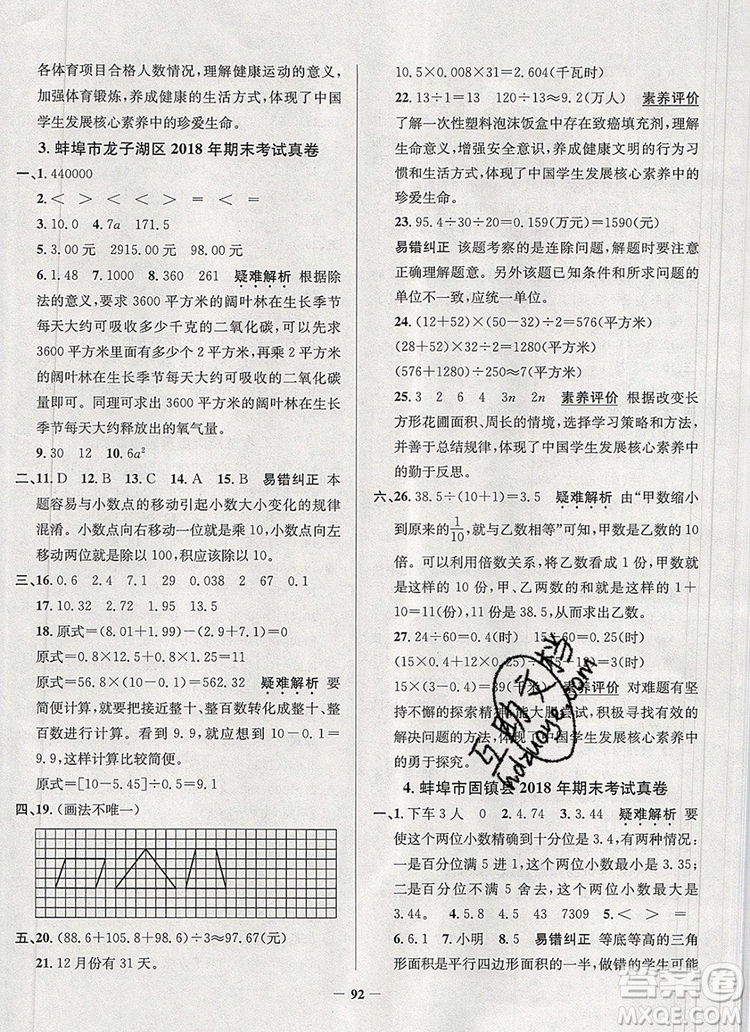 各体育项目合格人数情况，理解健康运动的意义，
加强体育锻炼，养成健康的生活方式，体现了中国
学生发展核心素养中的珍爱生命。
3. 蚌埠市龙子湖区 2018 年期末考试真卷
一、1. 440000
2. ＜　＜　＞　＜　＞　＝
3. 10.0　4. 7a　171.5
5. 3.00 元　2915.00 元　98.00 元
6. 1.48　7. 1000　8. 360　261　疑难解析　根据除
法的意义，要求 3600 平方米的阔叶林在生长季节
每天大约可吸收多少千克的二氧化碳，就是求
3600 平方米里面有多少个 10 平方米，3600 平方
米里面有多少个 10 平方米就表示 3600 平方米的
阔叶林在生长季节每天大约可吸收的二氧化碳
量。同理可求出 3600 平方米的阔叶林在生长季
节每天大约释放出的氧气量。
9. 30　12　10. 6a²
二、11. D　12. D　13. C　14. A　15. C　易错纠正　本
题容易与小数点的移动引起小数大小变化的规律
混淆。小数点向右移动一位就是乘 10，小数点向左
移动两位就是除以 100，积应该除以 10。
三、16. 0.6　2.4　7.1　29　0.038　2　0.67　0.2
17. 15　0.45　1.955
18. 原式＝(8.01＋1.99)－(1.2＋0.8)＝8
原式＝0.8×12.5＋0.8×0.4＝10.32
原式＝5.62×(101－1)＝562　疑难解析　要
简便计算，就要把接近整十、整百数转化成整十、整
百数进行计算。看到 99，就应想到 100－1，101－
1，这样计算比较简便。
原式＝[0.45－0.15]÷0.3＝1
四、19. (画法不唯一)
五、20. (88.6＋105.8＋98.4)÷3＝97.6(千瓦时)
21. 12 月份有 31 天。
10.5×0.008×31＝2.604(千瓦时)
22. 13÷1＝13　120÷13≈9.2(万人)　素养评价
了解一次性塑料泡沫饭盒中存在致癌填充剂，可
增强安全意识，养成健康文明的行为习
惯和生活方式，体现了中国学生发展核心素养中的
珍爱生命。
23. 95.4÷20÷30＝0.159(万元)＝1590(元)
易错纠正　该题考察的是连除问题，解题时要注意
正确理解题意。另外该题已知条件和所求问题的
单位不一致，应统一。
24. (12＋52)×(5＋13)÷2＝576(平方米)
(28＋52)×32÷2＝1280(平方米)
(576＋1280)÷2＝928(平方米)
25. 3　2　6　4　3n　2n　素养评价　根据改变长
方形花圃面积、周长的情境，选择学习策略和方法，
并善于总结规律，体现了中国学生发展核心素养中
的勤于反思。
六、26. 38.5÷(10＋1)＝3.5　疑难解析　由“甲数缩小
到原来的1/10，就与乙数相等”可知，甲数是乙数的 10
倍。可以利用倍数关系，将乙数看成 1 份，甲数就
是这样的 10 份，甲、乙两数的和就是这样的 1＋
10＝11(份)，11 份是 38.5，从而求出乙数。
27. 24÷60＝0.4(时)　15÷60＝0.25(时)
(15×0.4＋12×0.25)÷(15－12)＝3(时)
15×(3－0.4)＝39(千米)　素养评价　对难题有坚
持不懈的探索精神，能大胆尝试，积极寻找有效的
解决问题的方法，体现了中国学生发展核心素养中
的勇于探究。
4. 蚌埠市固镇县 2018 年期末考试真卷
一、1. 下车 3 人　0　2. 4.74　3. 3.44　疑难解析　要
使这个两位小数精确到十分位是 3.4，有两种情况：
一是百分位满 5 进 1，这个两位小数最小是 3.35；二
是百分位不满 5 舍去，这个两位小数最大是
3.44。　4. 5.9　4.04　4.5　7309　5. ＜　＞　＝
6. 0.1　7. 小明　8. 5　易错纠正　等底等高的三角
形面积是平行四边形面积的一半，做错的学生可能
— 92 —
互助文档
hdzuoye.com
答案圈
MXQE.COM